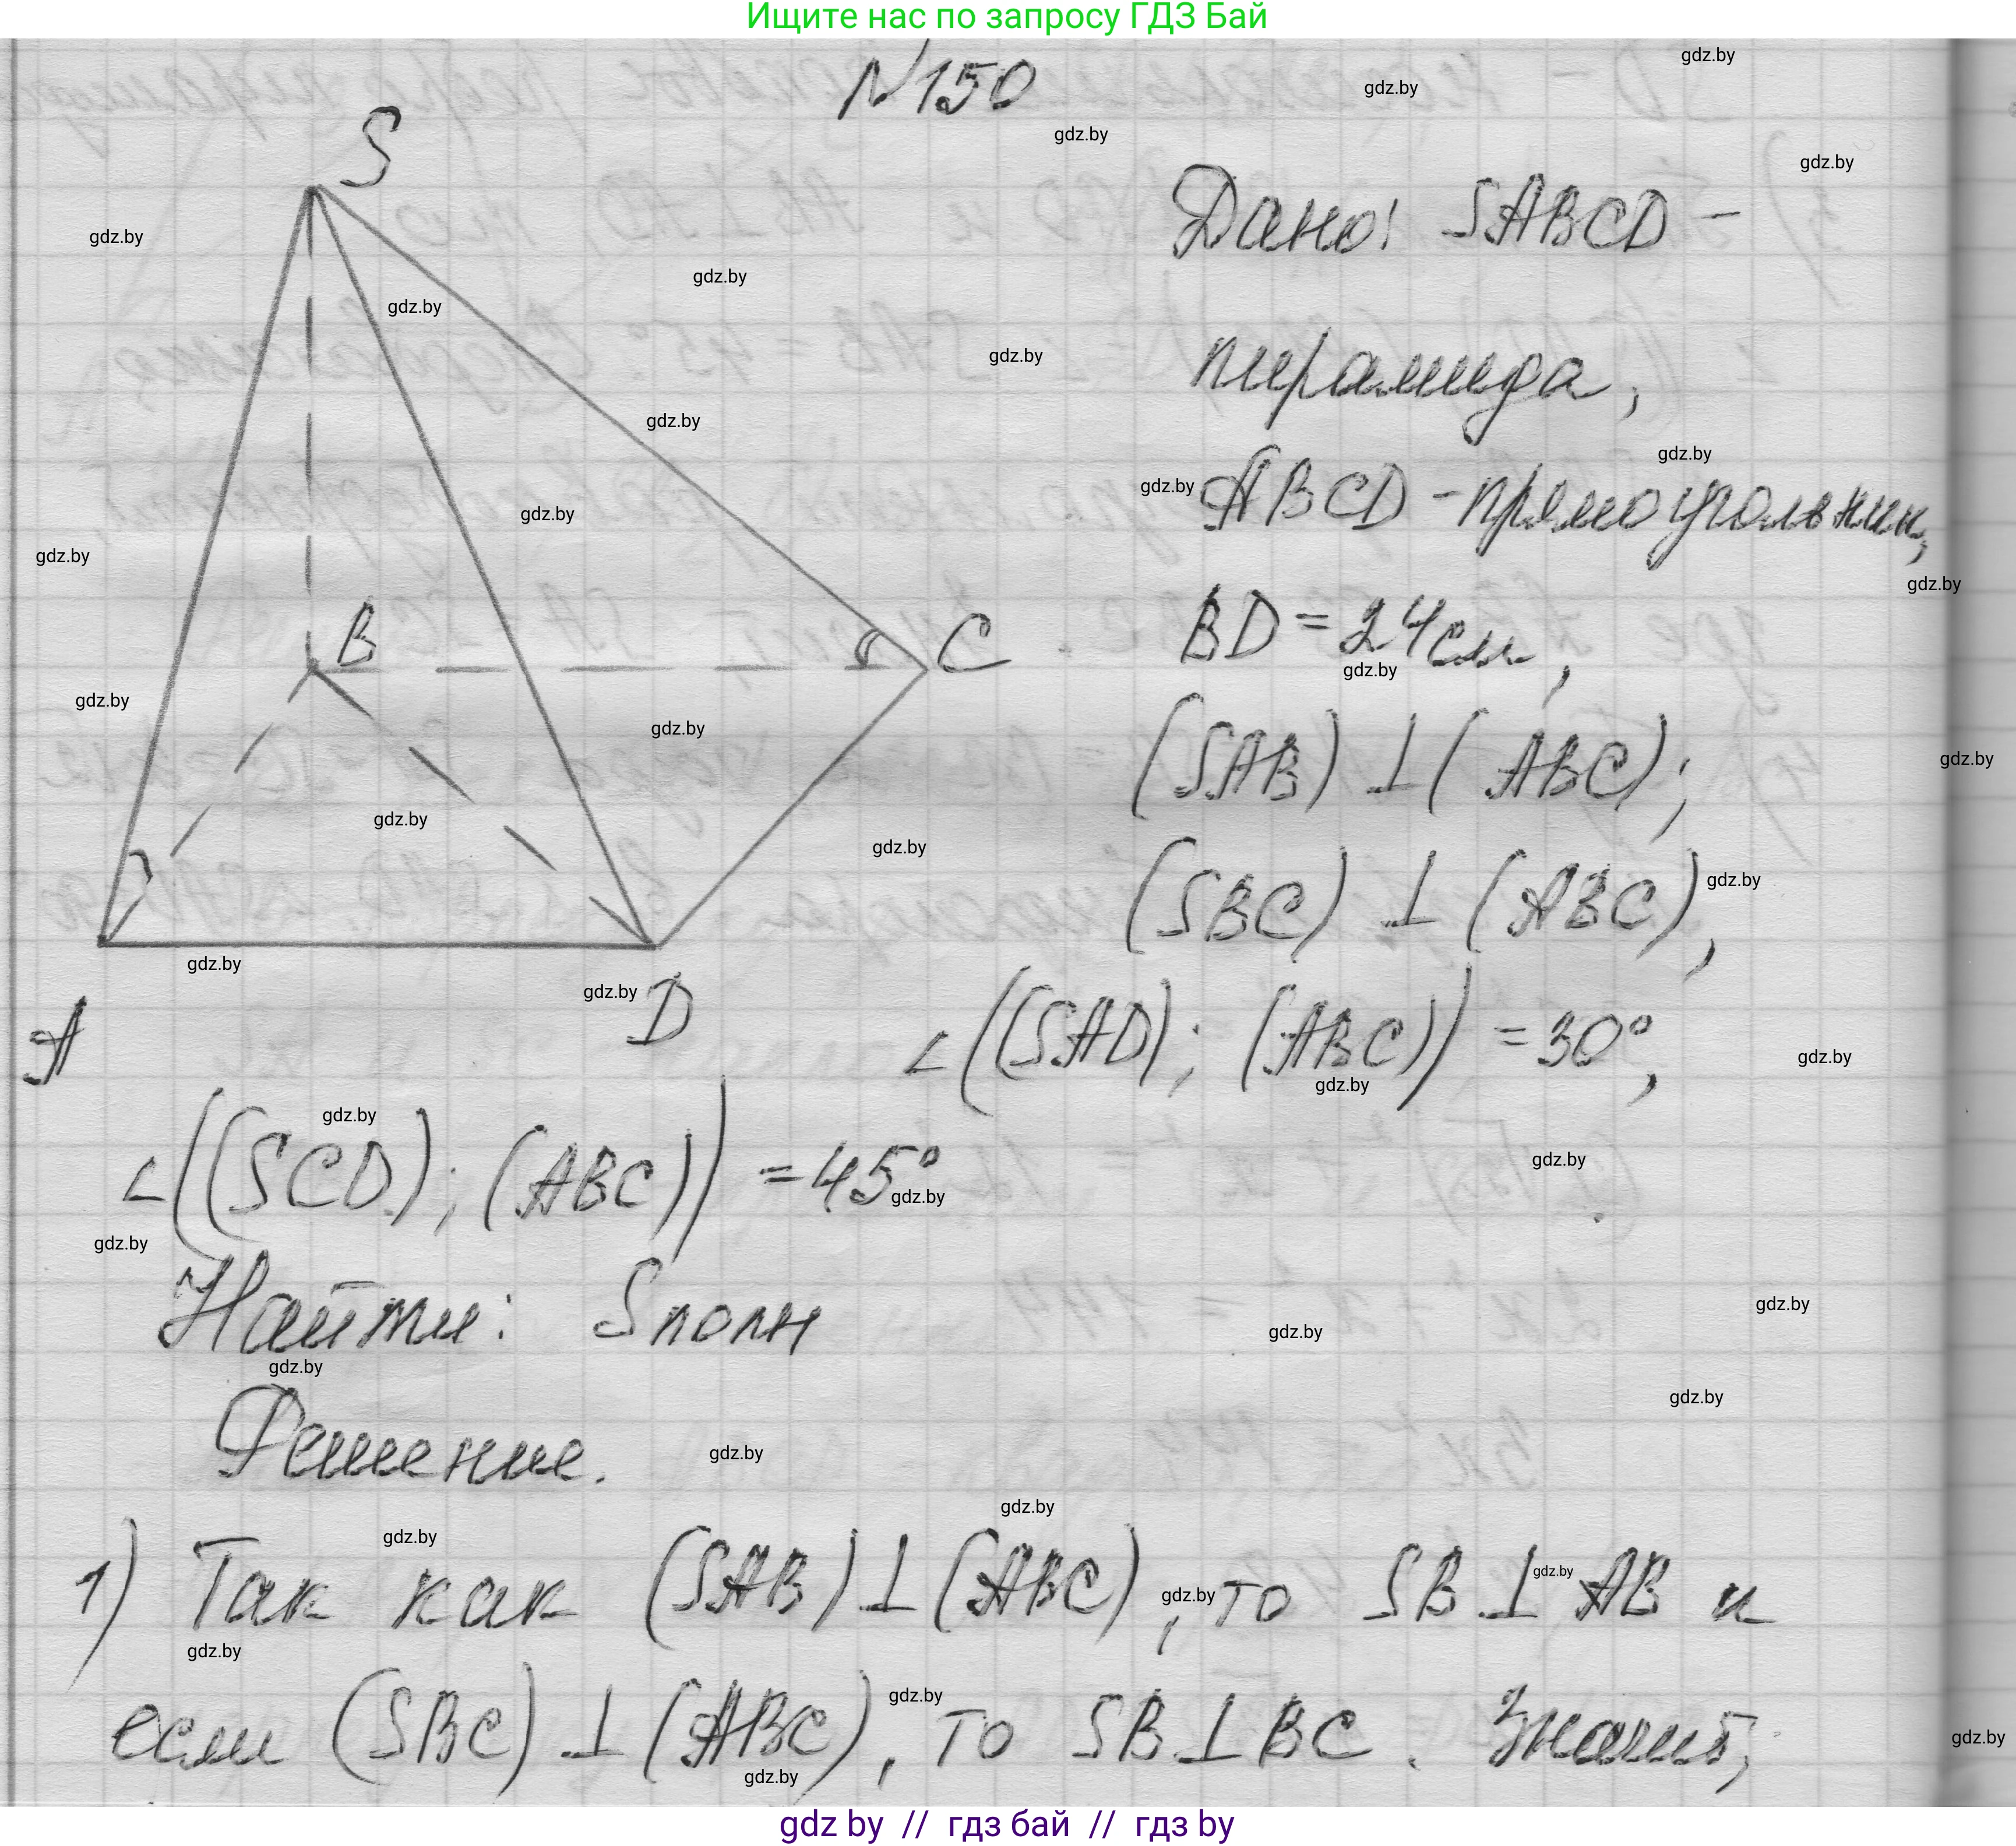 Ищите нас по запросу ГДЗ Бай
N150
S
Дано: SABCD -
пирамида,
ABCD - прямоугольник,
B
C
BD = 24 см,
(SAB) ⊥ (ABC);
(SBC) ⊥ (ABC),
A
D
∠((SAD); (ABC)) = 30°,
∠((SCD); (ABC)) = 45°
Найти: Sполн
Решение.
1) Так как (SAB) ⊥ (ABC), то SB ⊥ AB и
если (SBC) ⊥ (ABC), то SB ⊥ BC. Значит,
gdz by // гдз бай // гдз by